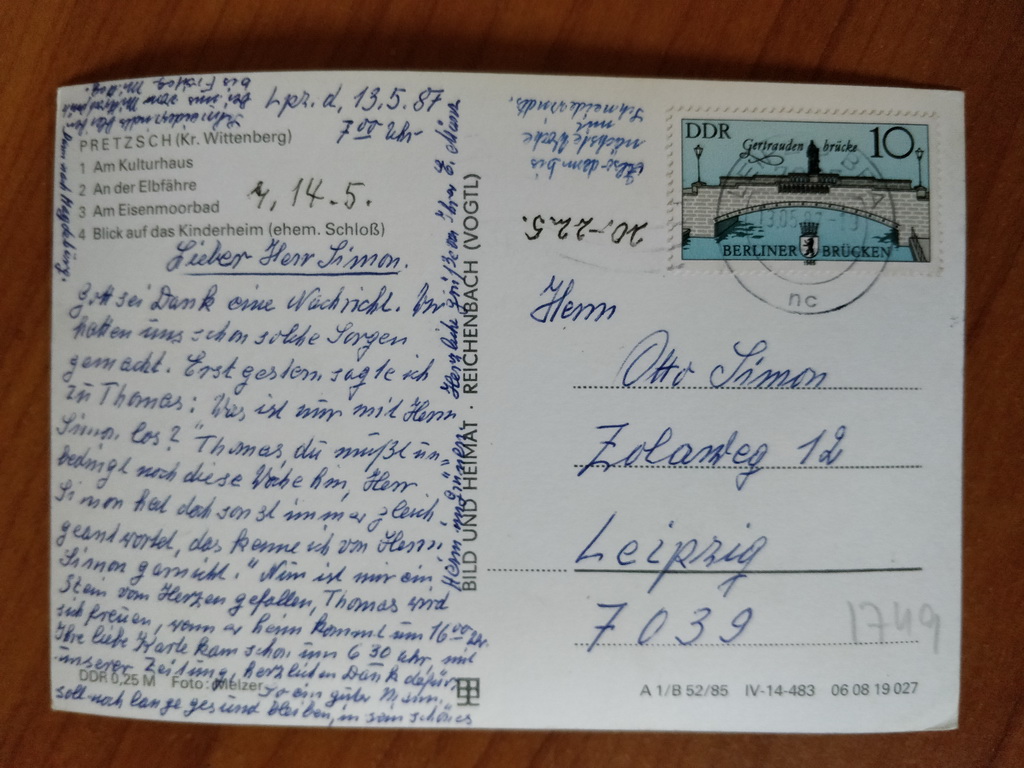 Lpz. d, 13.5.87
7 00 Uhr
PRETZSCH (Kr. Wittenberg)
1 Am Kulturhaus
2 An der Elbfähre
3 Am Eisenmoorbad
4 Blick auf das Kinderheim (ehem. Schloß)
14.5.
Lieber Herr Simon.
Gott sei Dank eine Nachricht. Wir
hatten uns schon solche Sorgen
gemacht. Erst gestern sagte ich
zu Thomas: Was ist nur mit Herrn
Simon los? Thomas, du mußt un-
bedingt noch diese Woche hin, Herr
Simon hat doch sonst immer gleich
geantwortet, das kenne ich von Herrn
Simon garnicht." Nun ist mir ein
Stein vom Herzen gefallen, Thomas wird
sich freuen, wenn er heim kommt um 16 00 Uhr.
Ihre liebe Karte kam schon um 6 30 Uhr, mit
unserer Zeitung, herzlichen Dank dafür.
So ein guter Mann
soll noch lange gesund bleiben, in sein schönes
DDR 0,25 M Foto: Melzer
Heim
Herzliche Grüße von Ihrer
BILD UND HEIMAT · REICHENBACH (VOGTL)
bis Freitag
bei uns vom
Schneiderwinds
Dann nach Magdeburg.
Also dann bis
nächste Woche
mit
Schneiderwinds.
20.-22.5.
DDR
10
Gertraudenbrücke
BERLINER BRÜCKEN
13.05.87
nc
Herrn
Otto Simon
Zolaweg 12
Leipzig
7039
1749
A 1/B 52/85 IV-14-483 06 08 19 027